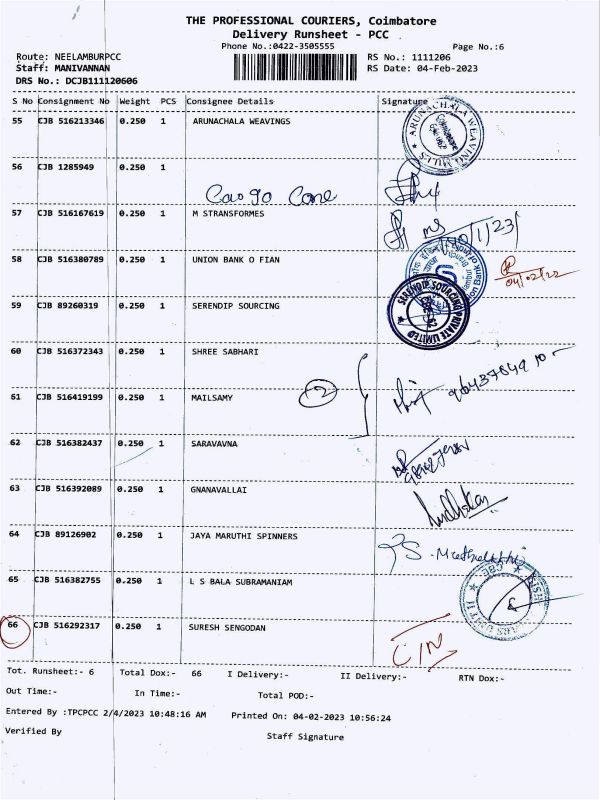 THE PROFESSIONAL COURIERS, Coimbatore
Delivery Runsheet - PCC
Phone No.:0422-3505555 Page No.:6
Route: NEELAMBURPCC RS No.: 1111206
Staff: MANIVANNAN RS Date: 04-Feb-2023
DRS No.: DCJB111120606
S No Consignment No Weight PCS Consignee Details Signature
55 CJB 516213346 0.250 1 ARUNACHALA WEAVINGS
ARUNACHALA WEAVING MILLS
56 CJB 1285949 0.250 1
Cargo Care
57 CJB 516167619 0.250 1 M STRANSFORMES
58 CJB 516380789 0.250 1 UNION BANK O FIAN
04/02/22
59 CJB 89260319 0.250 1 SERENDIP SOURCING
SERENDIP SOURCING PRIVATE LIMITED
60 CJB 516372343 0.250 1 SHREE SABHARI
61 CJB 516419199 0.250 1 MAILSAMY
2
62 CJB 516382437 0.250 1 SARAVAVNA
63 CJB 516392089 0.250 1 GNANAVALLAI
64 CJB 89126902 0.250 1 JAYA MARUTHI SPINNERS
65 CJB 516382755 0.250 1 L S BALA SUBRAMANIAM
66 CJB 516292317 0.250 1 SURESH SENGODAN
C/N
Tot. Runsheet:- 6 Total Dox:- 66 I Delivery:- II Delivery:- RTN Dox:-
Out Time:- In Time:- Total POD:-
Entered By :TPCPCC 2/4/2023 10:48:16 AM Printed On: 04-02-2023 10:56:24
Verified By Staff Signature